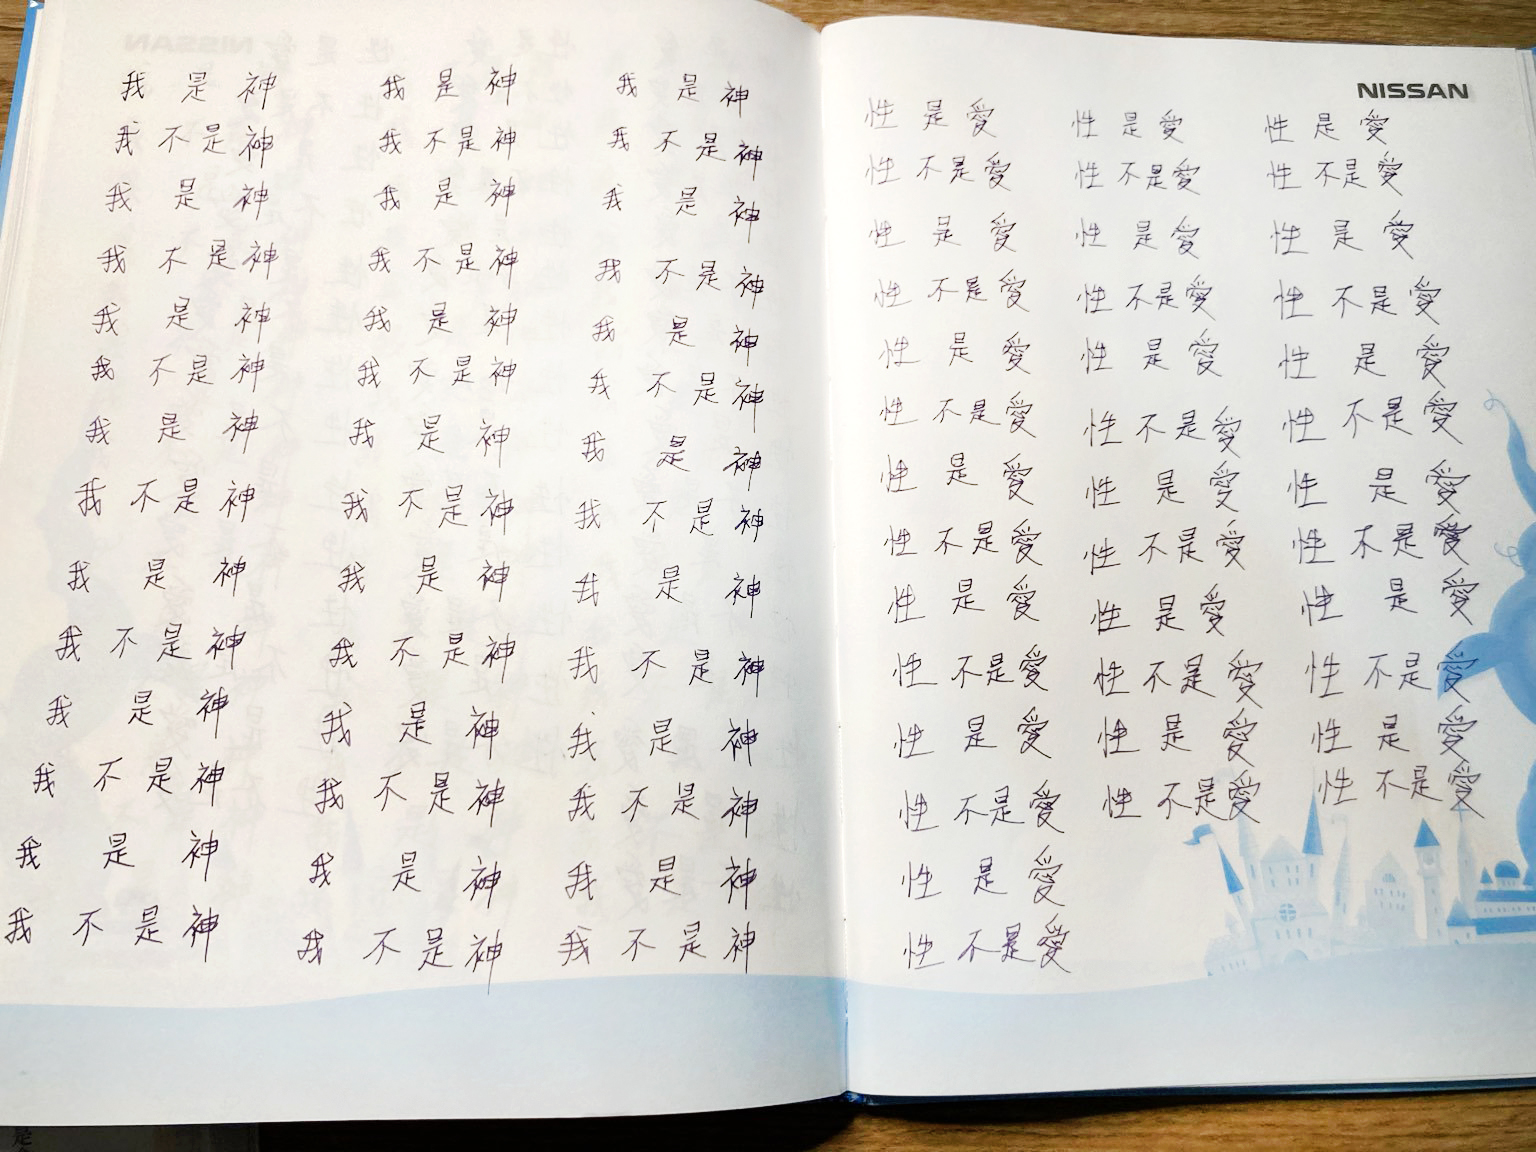 我是神
我不是神
我是神
我不是神
我是神
我不是神
我是神
我不是神
我是神
我不是神
我是神
我不是神
我是神
我不是神
我是神
我不是神
我是神
我不是神
我是神
我不是神
我是神
我不是神
我是神
我不是神
我是神
我不是神
我是神
我不是神
我是神
我不是神
我是神
我不是神
我是神
我不是神
我是神
我不是神
我是神
我不是神
我是神
我不是神
我是神
我不是神
NISSAN
性是愛
性不是愛
性是愛
性不是愛
性是愛
性不是愛
性是愛
性不是愛
性是愛
性不是愛
性是愛
性不是愛
性是愛
性不是愛
性是愛
性不是愛
性是愛
性不是愛
性是愛
性不是愛
性是愛
性不是愛
性是愛
性不是愛
性是愛
性不是愛
性是愛
性不是愛
性是愛
性不是愛
性是愛
性不是愛
性是愛
性不是愛
性是愛
性不是愛
性是愛
性不是愛